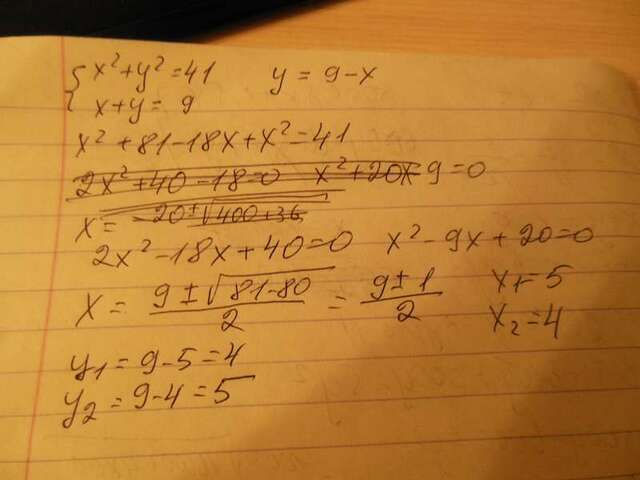 { x²+y²=41    y = 9-x
x+y= 9
x²+81-18x+x²=41
2x²+40-18=0    x²+20x-9=0
x= -20±√400+36
2x²-18x+40=0    x²-9x+20=0
x= 9±√81-80 / 2 = 9±1 / 2    x₁=5
x₂=4
y₁=9-5=4
y₂=9-4=5